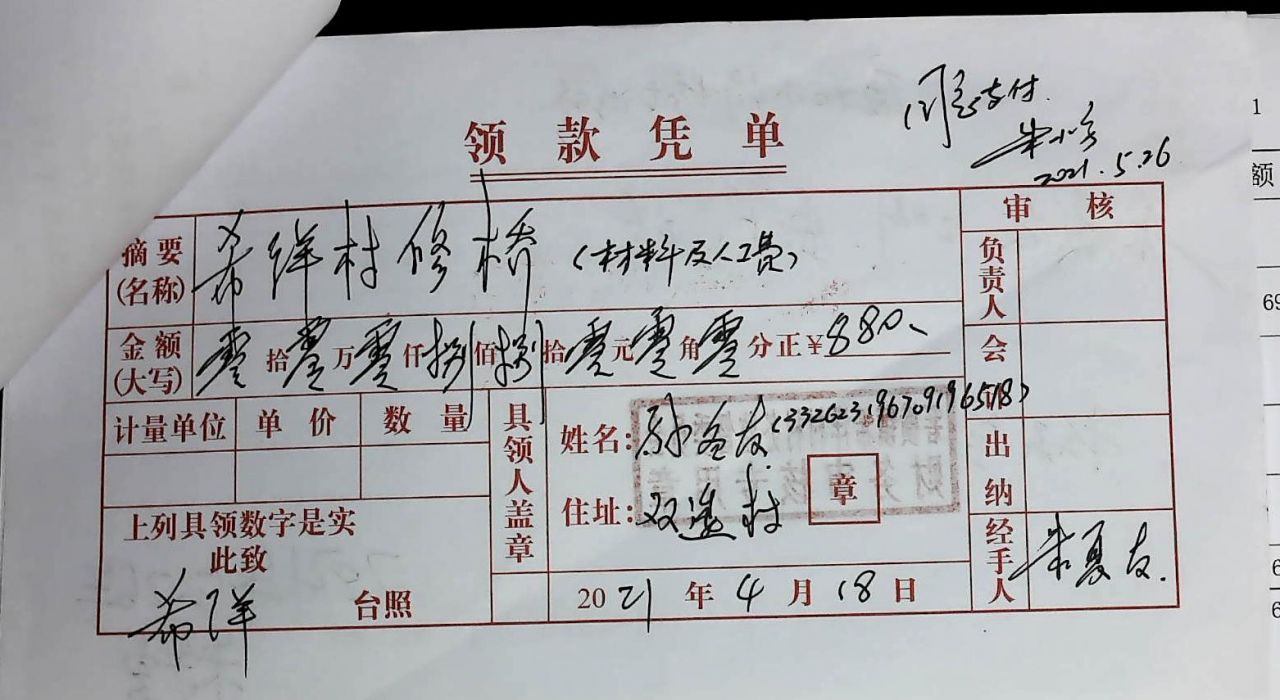 同意支付.
2021.5.26
领款凭单
摘要(名称) 希洋村修桥 (材料及人工费)
金额(大写) 零拾零万零仟捌佰捌拾零元零角零分正¥880
审核
负责人
会
出纳
经手人 朱夏友.
计量单位 单价 数量
具领人盖章
姓名: (332623196709196518)
住址: 双溪村
章
上列具领数字是实
此致
希洋 台照
2021年4月18日
1
额
69
6
6